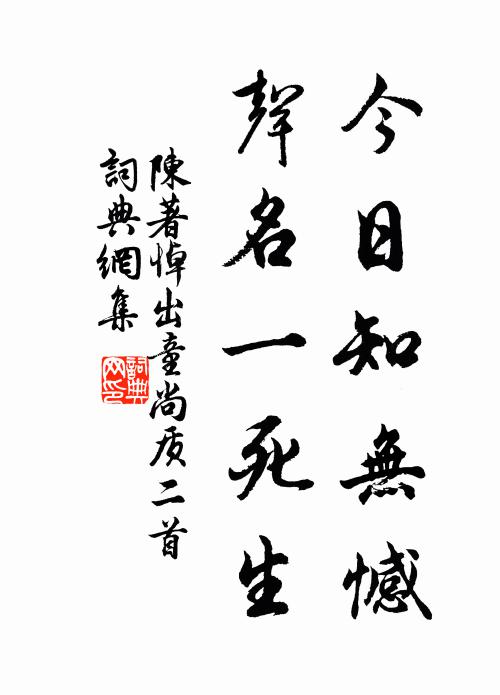 今日知無憾
聲名一死生
陳著悼出童尚质二首
詞典網集
詞典網印